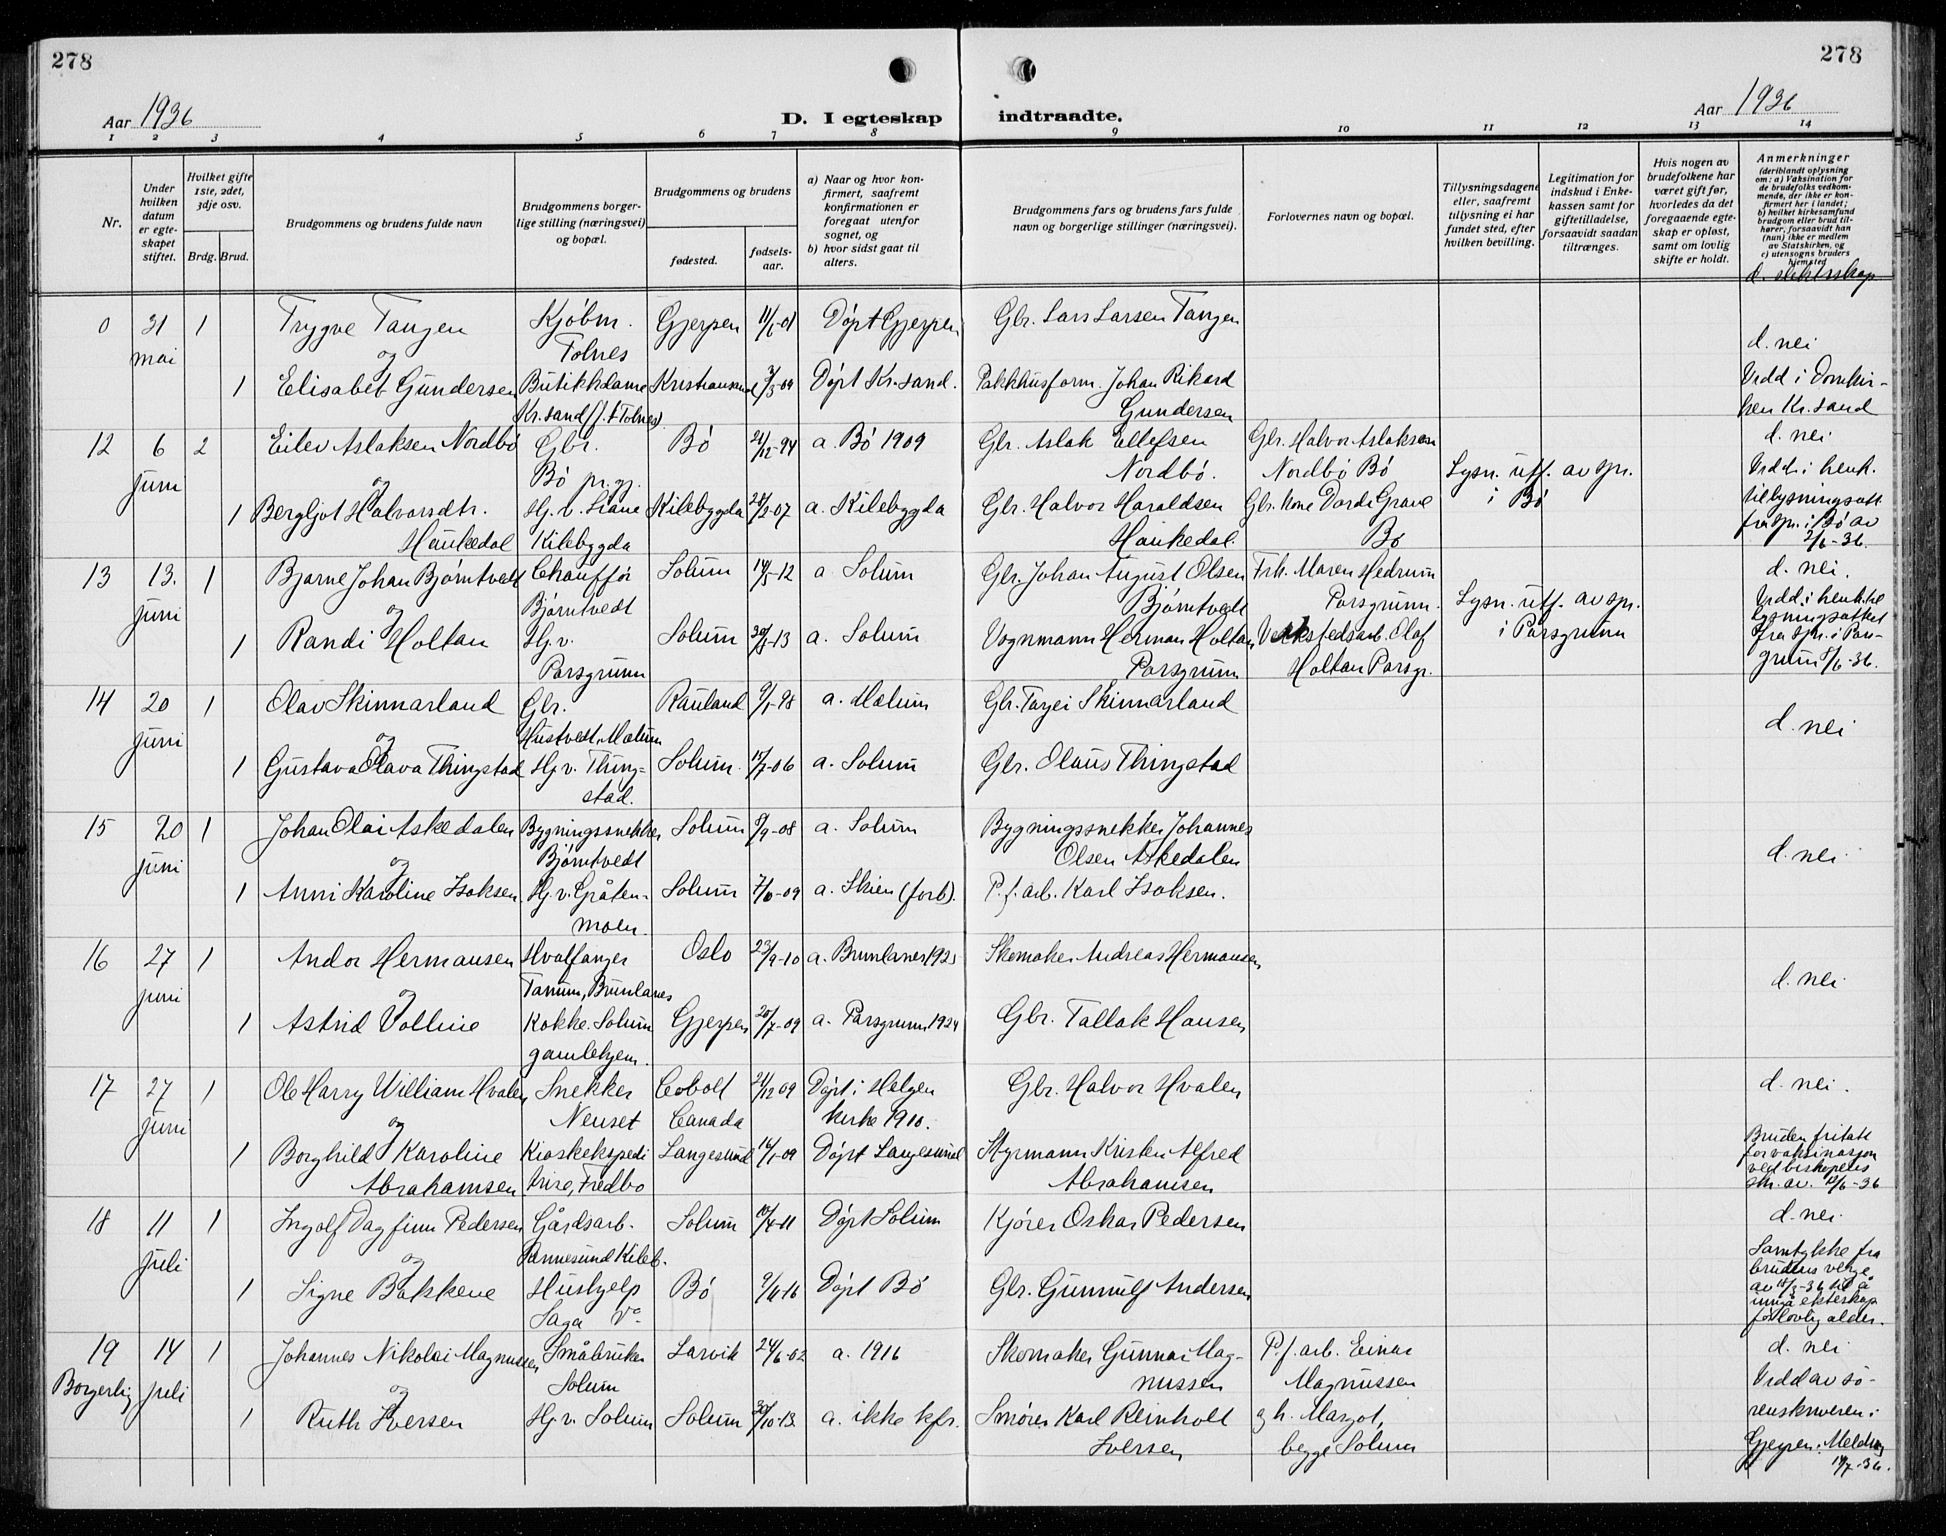 278
278
Aar 1936
D. I egteskap indtraadte.
Aar 1936
1 2 3 4 5 6 7 8 9 10 11 12 13 14
Nr.
Under hvilken datum er egteskapet stiftet.
Hvilket gifte 1ste, 2det, 3dje osv.
Brdg. Brud.
Brudgommens og brudens fulde navn
Brudgommens borgerlige stilling (næringsvei) og bopæl.
Brudgommens og brudens
fødested.
fødselsaar.
a) Naar og hvor konfirmert, saafremt konfirmationen er foregaat utenfor sognet, og
b) hvor sidst gaat til alters.
Brudgommens fars og brudens fars fulde navn og borgerlige stillinger (næringsvei).
Forlovernes navn og bopæl.
Tillysningsdagene eller, saafremt tillysning ei har fundet sted, efter hvilken bevilling.
Legitimation for indskud i Enkekassen samt for giftetilladelse, forsaavidt saadan tiltrænges.
Hvis nogen av brudefolkene har været gift før, hvorledes da det foregaaende egteskap er opløst, samt om lovlig skifte er holdt.
Anmerkninger
(deriblandt oplysning om: a) Vaksination for de brudefolks vedkommende, der ikke er konfirmert her i landet;
b) hvilket kirkesamfund brudgom eller brud tilhører, forsaavidt han (hun) ikke er medlem av Statskirken, og
c) utensogns bruders hjemsted
d. slektsskap
0 31 1 Trygve Tangen Kjøbm. Gjerpen 11/6-01 Døpt Gjerpen Gbr. Lars Larsen Tangen
mai og Tolnes d. nei
1 Elisabet Gundersen Butikkdame Kristiansand /3-09 Døpt Kr.sand. Pakkhusform. Johan Rikard Vidd i Domkir-
Kr.sand (f. t. Tolnes) Gundersen ken Kr.sand
12 6 2 Eilev Aslaksen Nordbø Gbr. Bø 21/12-94 a. Bø 1909 Gbr. Aslak Ellefsen Gbr. Halvor Aslaksen d. nei
juni og Bø pr.gj. Nordbø. Nordbø Bø Lysn. utf. av spr. Vidd i henh.
1 Bergljot Halvorsdtr. Hj. v. Liane Kilebygda 28/2-07 a. Kilebygda Gbr. Halvor Haraldsen Gbr. kone Dordi Grave i Bø tillysningsatt
Haukedal Kilebygda Haukedal. Bø fra spr. i Bø av
2/6-36.
13 13. 1 Bjarne Johan Bjørntvedt Chauffør Solum 14/5-12 a Solum Gbr. Johan August Olsen Frk. Maren Hedrum d. nei.
juni og Bjørntvedt Bjørntvedt Porsgrunn. Lysn. utf. av spr. Vidd i henh. til
1 Randi Holtan Hj. v. Solum 30/8-13 a. Solum Vognmann Herman Holtan Verkstedsarb. Olaf i Porsgrunn lysningsattest
Porsgrunn Porsgrunn Holtan Porsgr. fra spr. i Pors-
grunn 5/6-36.
14 20 1 Olav Skinnarland Gbr. Rauland 9/1-98 a. Melum Gbr. Tarjei Skinnarland
juni og Hustvedt, Melum d. nei
1 Gustava Olava Thingstad Hj. v. Thing- Solum. 15/7-06 a. Solum Gbr. Olaus Thingstad
stad.
15 20 1 Johan Olai Askedalen Bygningssnekker Solum 5/9-08 a. Solum Bygningssnekker Johannes
juni og Bjørntvedt Olsen Askedalen d. nei.
1 Anni Karoline Isaksen. Hj. v. Gråten- Solum 7/6-09 a. Skien (forb). P. f. arb. Karl Isaksen.
moen.
16 27 1 Andor Hermansen Hvalfanger Oslo 23/9-10 a. Brunlanes 1925 Skomaker Andreas Hermansen
juni og Tanum, Brunlanes d. nei.
1 Astrid Volline Kokke. Solum Gjerpen 20/7-09 a. Porsgrunn 1924 Gbr. Tallak Hansen
gamlehjem.
17 27 1 Ole Harry William Hvalen Snekker Cobolt 21/12 09 Døpt i Helgen Gbr. Halvor Hvalen d. nei.
juni og Neuset Canada kirke 1910.
1 Borghild Karoline Kioskekspedi Langesund 16/1-09 Døpt Langesund Styrmann Kristen Alfred Bruden fritatt
Abrahamsen trise, Fredbo Abrahamsen for vaksinasjon
ved biskopens
skr. av. /6-36
18 11 1 Ingolf Dagfinn Pedersen Gårdsarb. Solum 10/4-11 Døpt Solum Kjører Oskar Pedersen d. nei.
juli og Rønnesund Kileb. Samtykke fra
1 Signe Bakkene Hushjelp Bø 9/4-16 Døpt Bø Gbr. Gunnulf Andersen brudens verge
Saga Vo av 15/3-36 til å
inngå ekteskap
før lovlig alder.
19 14 1 Johannes Nikolai Magnussen Småbruker Larvik 24/6-02 a. 1916 Skomaker Gunnar Mag- P. f. arb. Einar d. nei
Borgerlig juli og Solum nussen Magnussen Vidd av so-
1 Ruth Iversen Hj. v. Solum Solum 30/10-13. a. ikke kfr. Smører Karl Reinholt g h. Margot, renskriveren i
Iversen begge Solum Gjerpen. Melding
14/7-36.